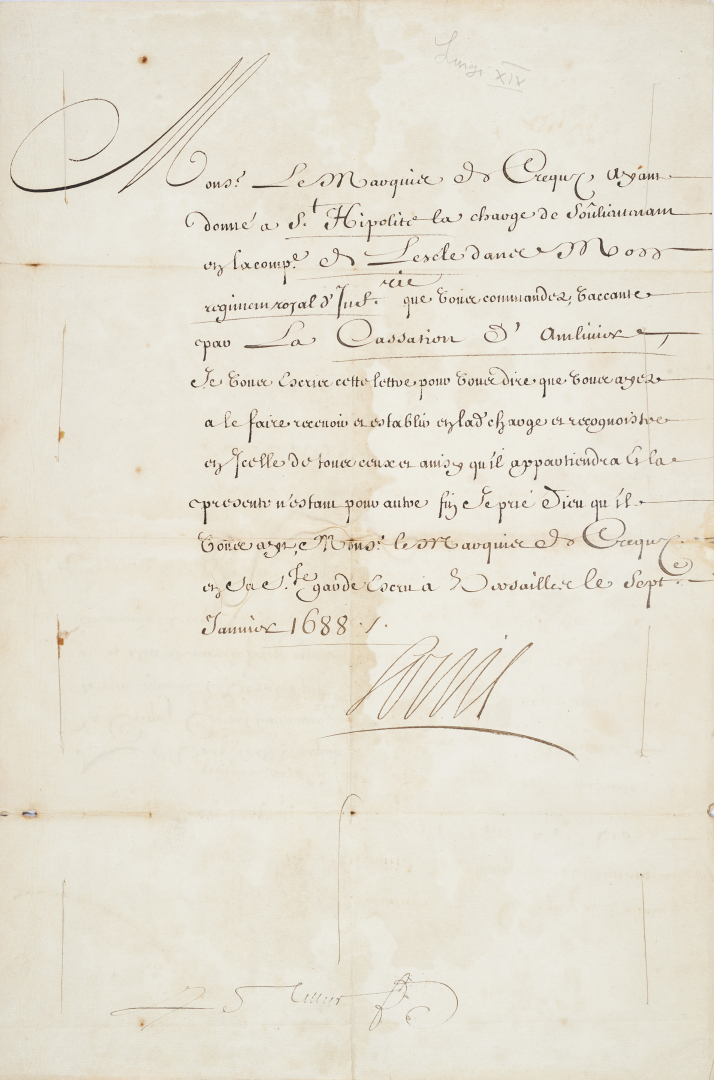 Luigi XIV
Mons.r Le Marquis de Crequy ayant
donné a S.t Hipolite la charge de Soûlieutenant
en la comp.e de dans Mon
regiment royal d'Inf.rie que vous commandez, vaccante
par La Cassation d'
Je vous escris cette lettre pour vous dire que vous ayez
a le faire recevoir et establir en lad.e charge et recognoistre
en Icelle de tous ceux et ainsy qu'il appartiendra Et la
presente n'estant pour autre fin Je prie Dieu qu'il
vous ayt, Mons.r le Marquis de Crequy
en sa S.te garde Escrit a Versailles le Sept.e
Janvier 1688 ./.
Louis